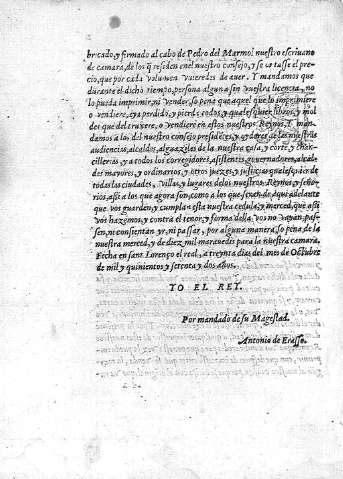 bricado, y firmado al cabo de Pedro del Marmol nuestro escriuano
de camara, de los q̃ residen en el nuestro consejo, y se os tasse el pre-
cio, que por cada volumen vuieredes de auer. Y mandamos que
durante el dicho tiempo, persona alguna sin vuestra licencia, no
lo pueda imprimir, ni vender, so pena que aquel que lo imprimiere
o vendiere, aya perdido, y pierda todos, y qualesquier libros, y mol
des que del tuuiere, o vendiere en estos nuestros Reynos. Y man
damos a los del nuestro consejo presidente, y oydores de las nuestras
audiencias, alcaldes, alguaziles de la nuestra casa, y corte, y chan-
cillerias, y a todos los corregidores, assistentes, gouernadores, alcal-
des mayores, y ordinarios, y otros juezes, y justicias qualesquier de
todas las ciudades, villas, y lugares de los nuestros Reynos, y seño-
rios, assi a los que agora son, como a los que seran de aqui adelante
que vos guarden, y cumplan esta nuestra cedula, y merced, que assi
vos hazemos, y contra el tenor, y forma della vos no vayan, pas-
sen, ni consientan yr, ni passar, por alguna manera, so pena de la
nuestra merced, y de diez mil marauedis para la nuestra camara.
Fecha en sant Lorenço el real, a treynta dias del mes de Octubre
de mil y quinientos y setenta y dos años.
YO EL REY.
Por mandado de su Magestad.
Antonio de Erasso.